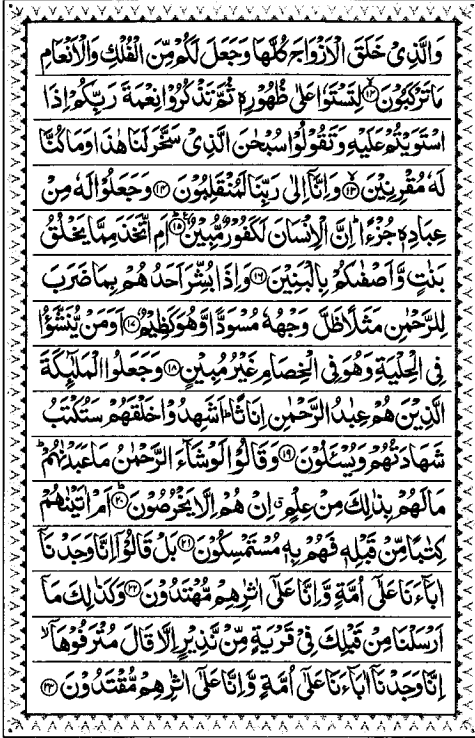 وَالَّذِیْ خَلَقَ الْاَزْوَاجَ كُلَّهَا وَجَعَلَ لَكُمْ مِّنَ الْفُلْكِ وَالْاَنْعَامِ
مَا تَرْكَبُوْنَ ۙ﴿۱۲﴾ لِتَسْتَوٗا عَلٰی ظُهُوْرِهٖ ثُمَّ تَذْكُرُوْا نِعْمَةَ رَبِّكُمْ اِذَا
اسْتَوَیْتُمْ عَلَیْهِ وَتَقُوْلُوْا سُبْحٰنَ الَّذِیْ سَخَّرَ لَنَا هٰذَا وَمَا كُنَّا
لَهٗ مُقْرِنِیْنَ ۙ﴿۱۳﴾ وَاِنَّاۤ اِلٰی رَبِّنَا لَمُنْقَلِبُوْنَ ﴿۱۴﴾ وَجَعَلُوْا لَهٗ مِنْ
عِبَادِهٖ جُزْءًا ؕ اِنَّ الْاِنْسَانَ لَكَفُوْرٌ مُّبِیْنٌ ؕ﴿۱۵﴾ اَمِ اتَّخَذَ مِمَّا یَخْلُقُ
بَنٰتٍ وَّاَصْفٰىكُمْ بِالْبَنِیْنَ ﴿۱۶﴾ وَاِذَا بُشِّرَ اَحَدُهُمْ بِمَا ضَرَبَ
لِلرَّحْمٰنِ مَثَلًا ظَلَّ وَجْهُهٗ مُسْوَدًّا وَّهُوَ كَظِیْمٌ ﴿۱۷﴾ اَوَمَنْ یُّنَشَّؤُا
فِی الْحِلْیَةِ وَهُوَ فِی الْخِصَامِ غَیْرُ مُبِیْنٍ ﴿۱۸﴾ وَجَعَلُوا الْمَلٰٓئِكَةَ
الَّذِیْنَ هُمْ عِبٰدُ الرَّحْمٰنِ اِنَاثًا ؕ اَشَهِدُوْا خَلْقَهُمْ ؕ سَتُكْتَبُ
شَهَادَتُهُمْ وَیُسْـَٔلُوْنَ ﴿۱۹﴾ وَقَالُوْا لَوْ شَآءَ الرَّحْمٰنُ مَا عَبَدْنٰهُمْ ؕ
مَا لَهُمْ بِذٰلِكَ مِنْ عِلْمٍ ۗ اِنْ هُمْ اِلَّا یَخْرُصُوْنَ ؕ﴿۲۰﴾ اَمْ اٰتَیْنٰهُمْ
كِتٰبًا مِّنْ قَبْلِهٖ فَهُمْ بِهٖ مُسْتَمْسِكُوْنَ ﴿۲۱﴾ بَلْ قَالُوْۤا اِنَّا وَجَدْنَاۤ
اٰبَآءَنَا عَلٰۤی اُمَّةٍ وَّاِنَّا عَلٰۤی اٰثٰرِهِمْ مُّهْتَدُوْنَ ﴿۲۲﴾ وَكَذٰلِكَ مَاۤ
اَرْسَلْنَا مِنْ قَبْلِكَ فِیْ قَرْیَةٍ مِّنْ نَّذِیْرٍ اِلَّا قَالَ مُتْرَفُوْهَاۤ ۙ
اِنَّا وَجَدْنَاۤ اٰبَآءَنَا عَلٰۤی اُمَّةٍ وَّاِنَّا عَلٰۤی اٰثٰرِهِمْ مُّقْتَدُوْنَ ﴿۲۳﴾